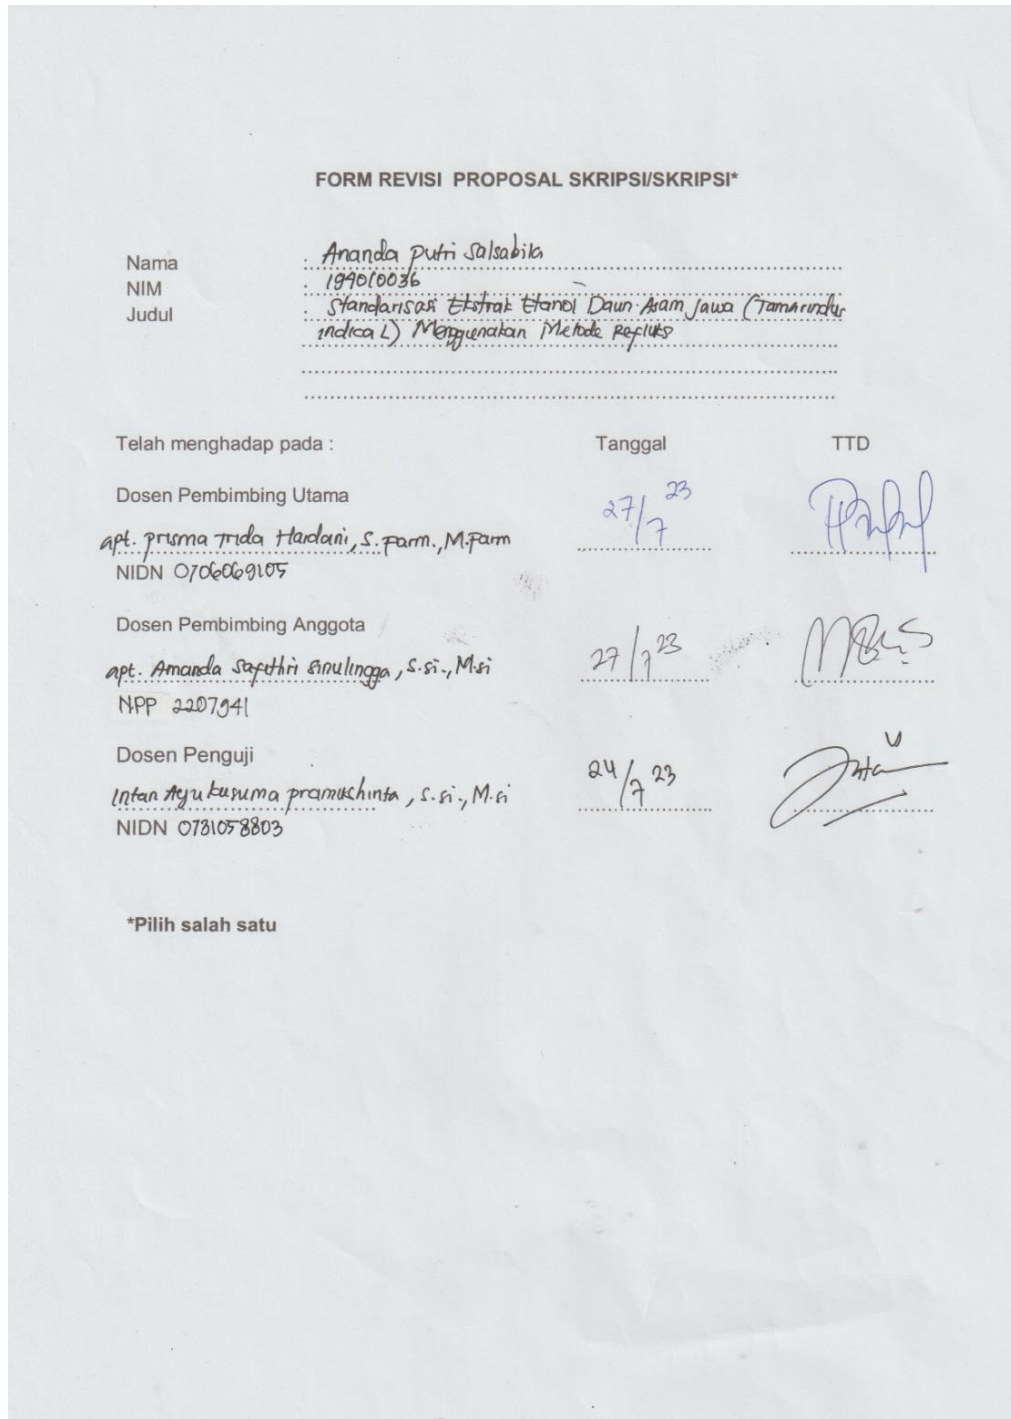 FORM REVISI PROPOSAL SKRIPSI/SKRIPSI*
Nama : Ananda Putri Salsabila
NIM : 194010036
Judul : Standarisasi Ekstrak Etanol Daun Asam Jawa (Tamarindus
indica L) Menggunakan Metode Refluks
Telah menghadap pada : Tanggal TTD
Dosen Pembimbing Utama
apt. Prisma Trida Hardani, S.Farm., M.Farm 27/7 23
NIDN 0706069105
Dosen Pembimbing Anggota
apt. Amanda Safithri Sinulingga, S.Si., M.Si 27/7 23
NPP 2207941
Dosen Penguji
Intan Ayu Kusuma Pramushinta, S.Si., M.Si 24/7 23
NIDN 0731058803
*Pilih salah satu